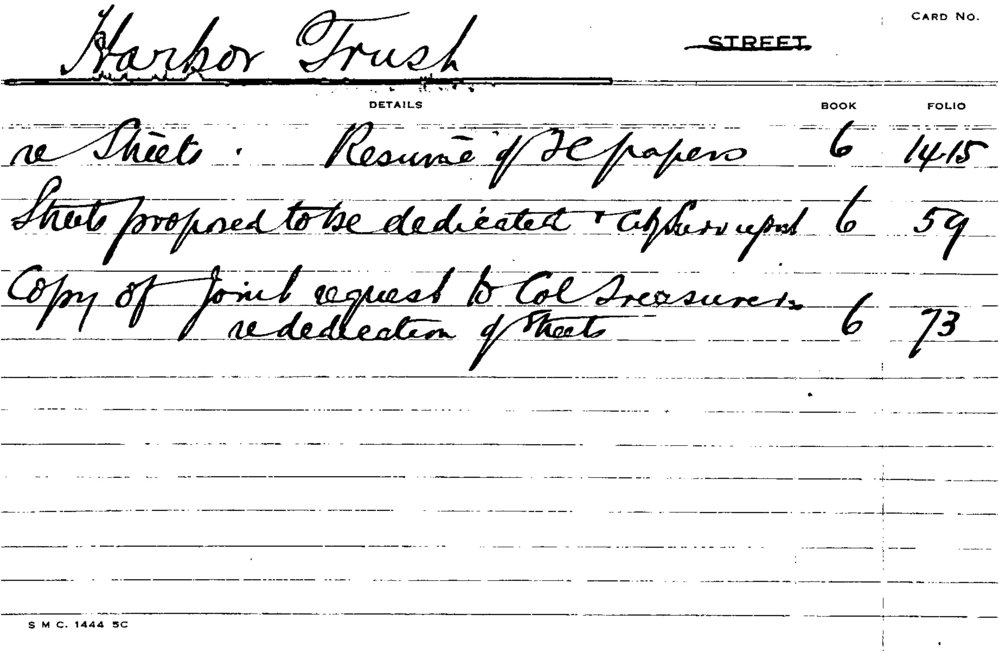 CARD NO.
Harbor Trush STREET
DETAILS BOOK FOLIO
re Streets. Resumé of TC papers 6 1415
Streets proposed to be dedicated + City Surv report 6 59
Copy of Joint request to Col Treasurer
re dedication of Streets 6 73
S M C. 1444 5C